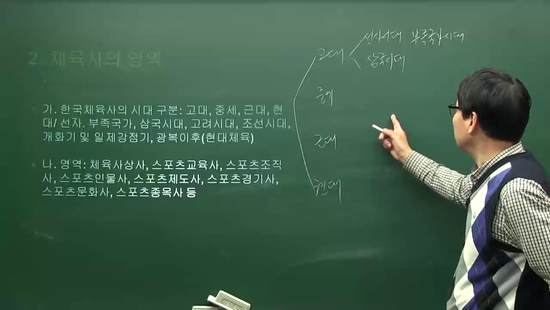 2. 체육사의 영역
가. 한국체육사의 시대 구분: 고대, 중세, 근대, 현
대/ 선자. 부족국가, 삼국시대, 고려시대, 조선시대,
개화기 및 일제강점기, 광복이후(현대체육)
나. 영역: 체육사상사, 스포츠교육사, 스포츠조직
사, 스포츠인물사, 스포츠제도사, 스포츠경기사,
스포츠문화사, 스포츠종목사 등
고대
선사시대 부족국가시대
삼국시대
중세
근대
현대